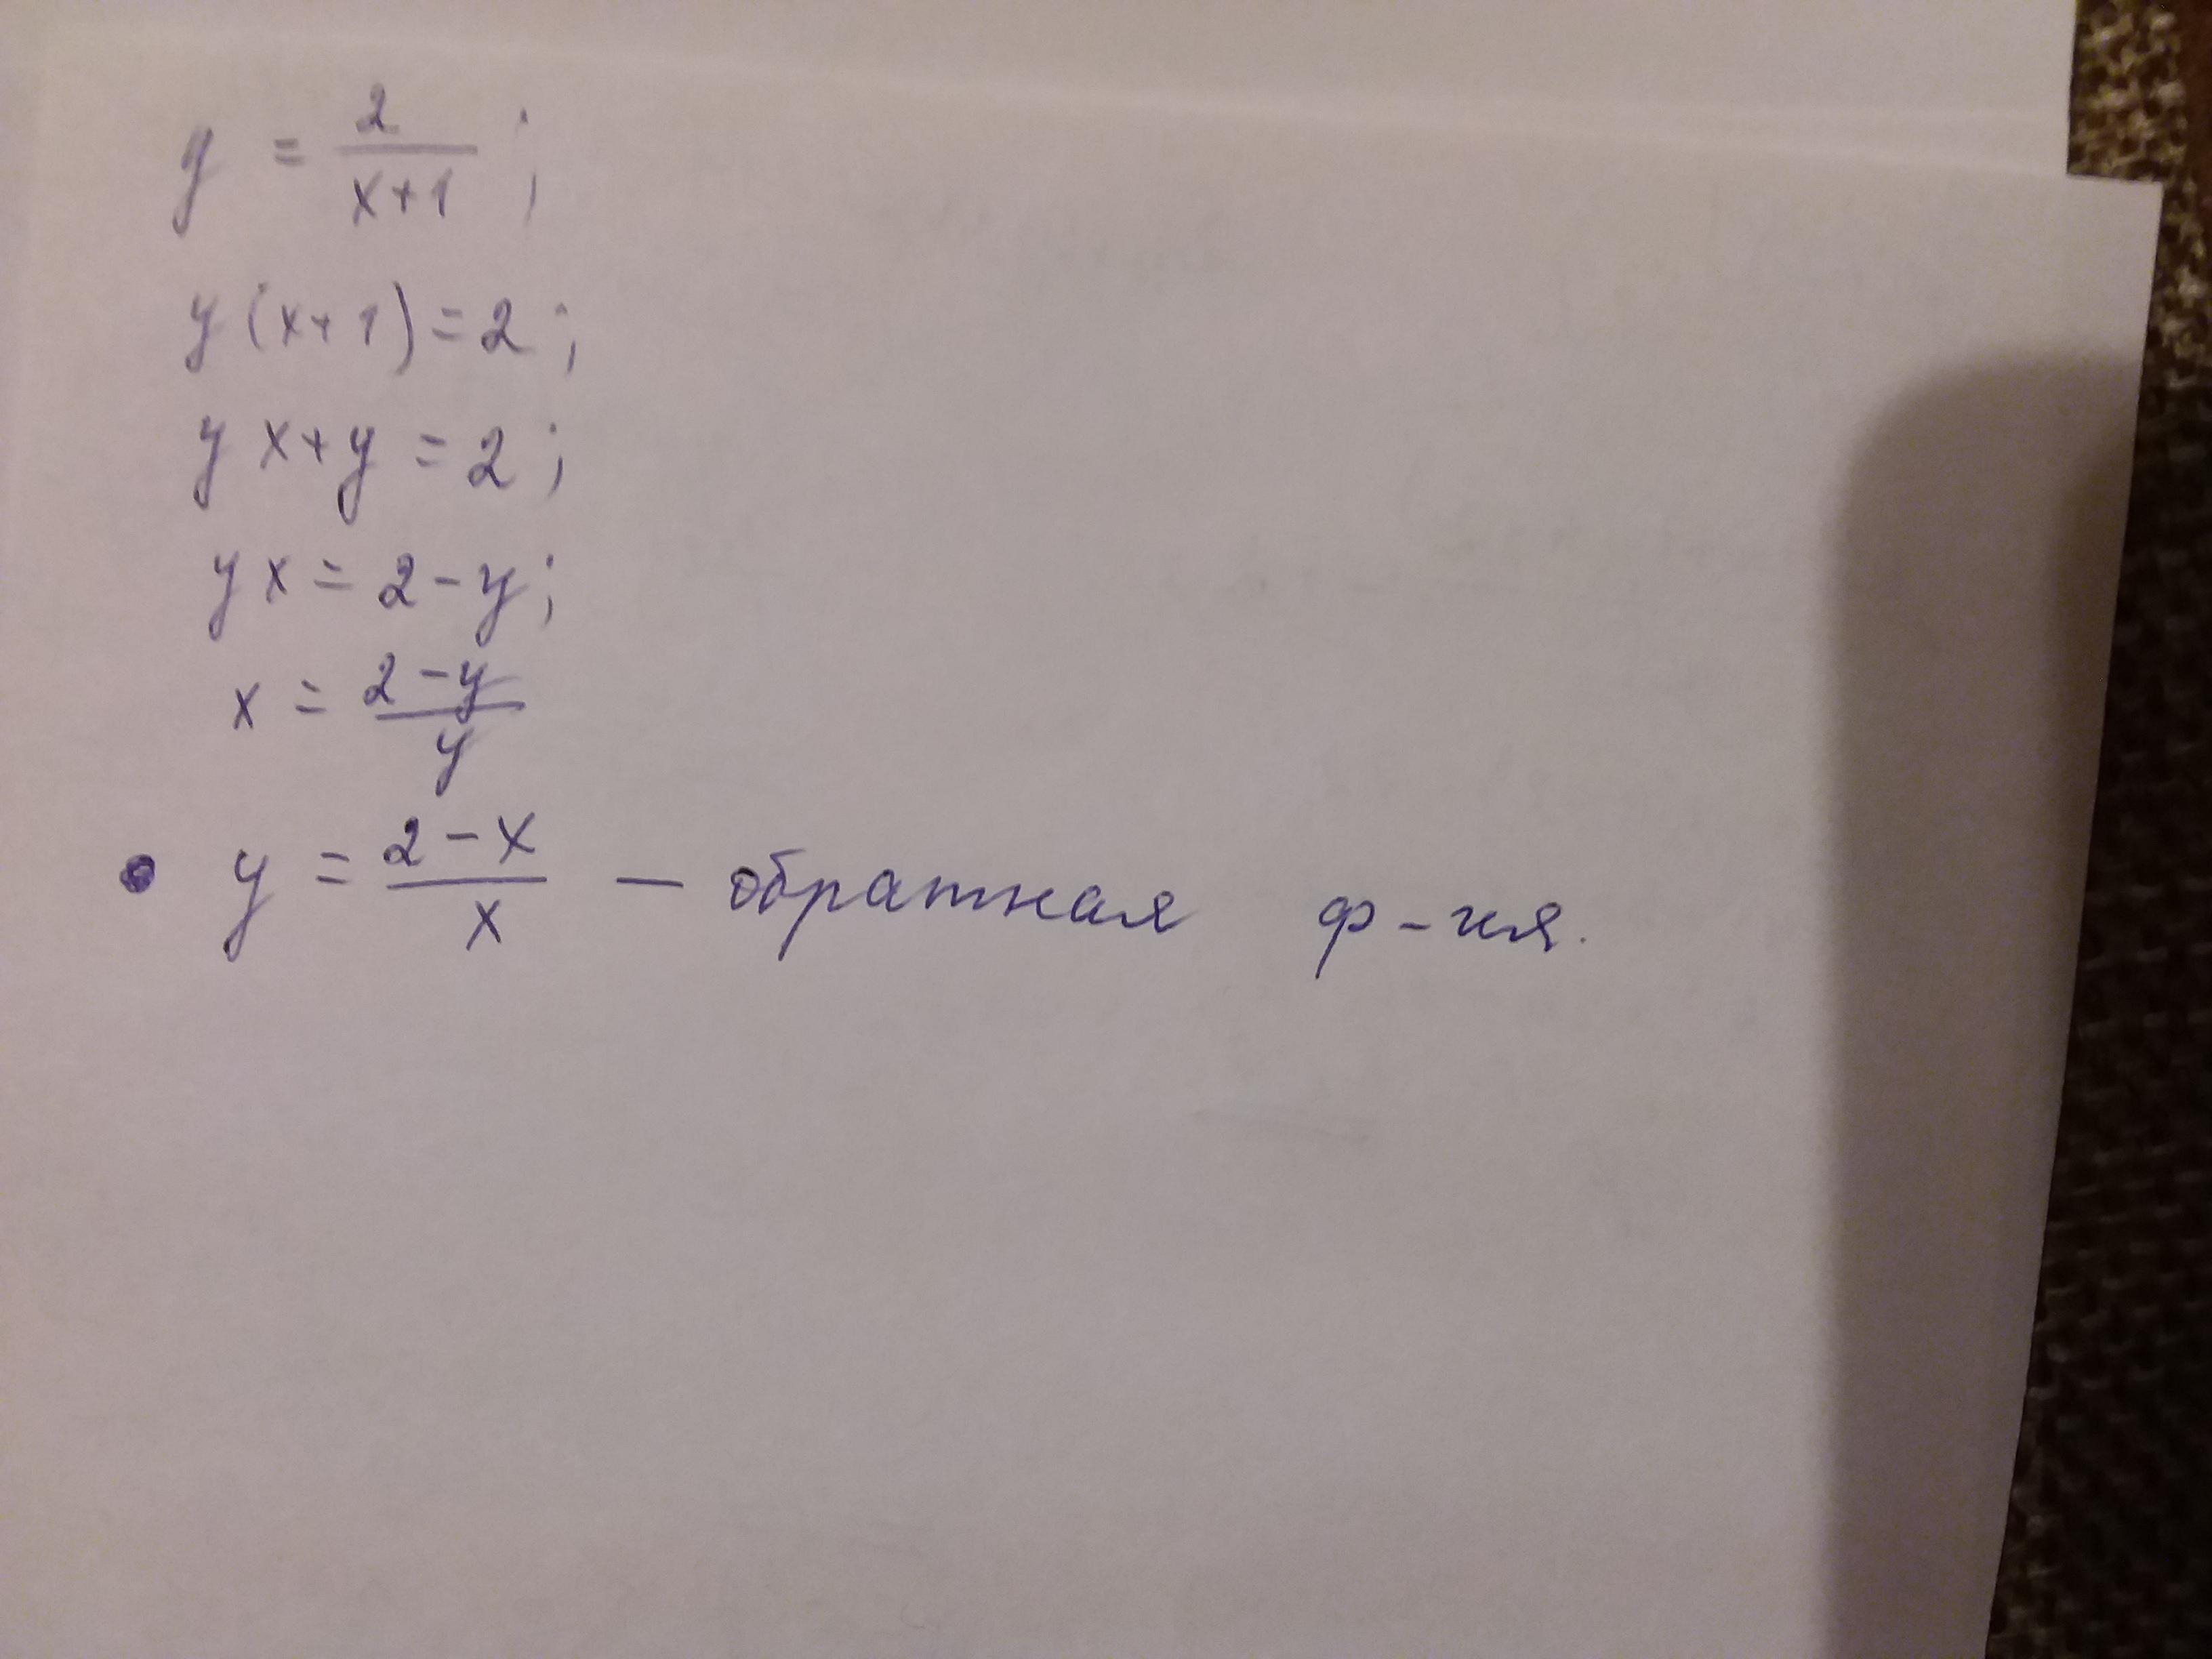 y = 2/(x+1) ;
y (x+1) = 2 ;
y x + y = 2 ;
y x = 2 - y ;
x = (2 - y)/y
• y = (2 - x)/x — обратная ф-ия.